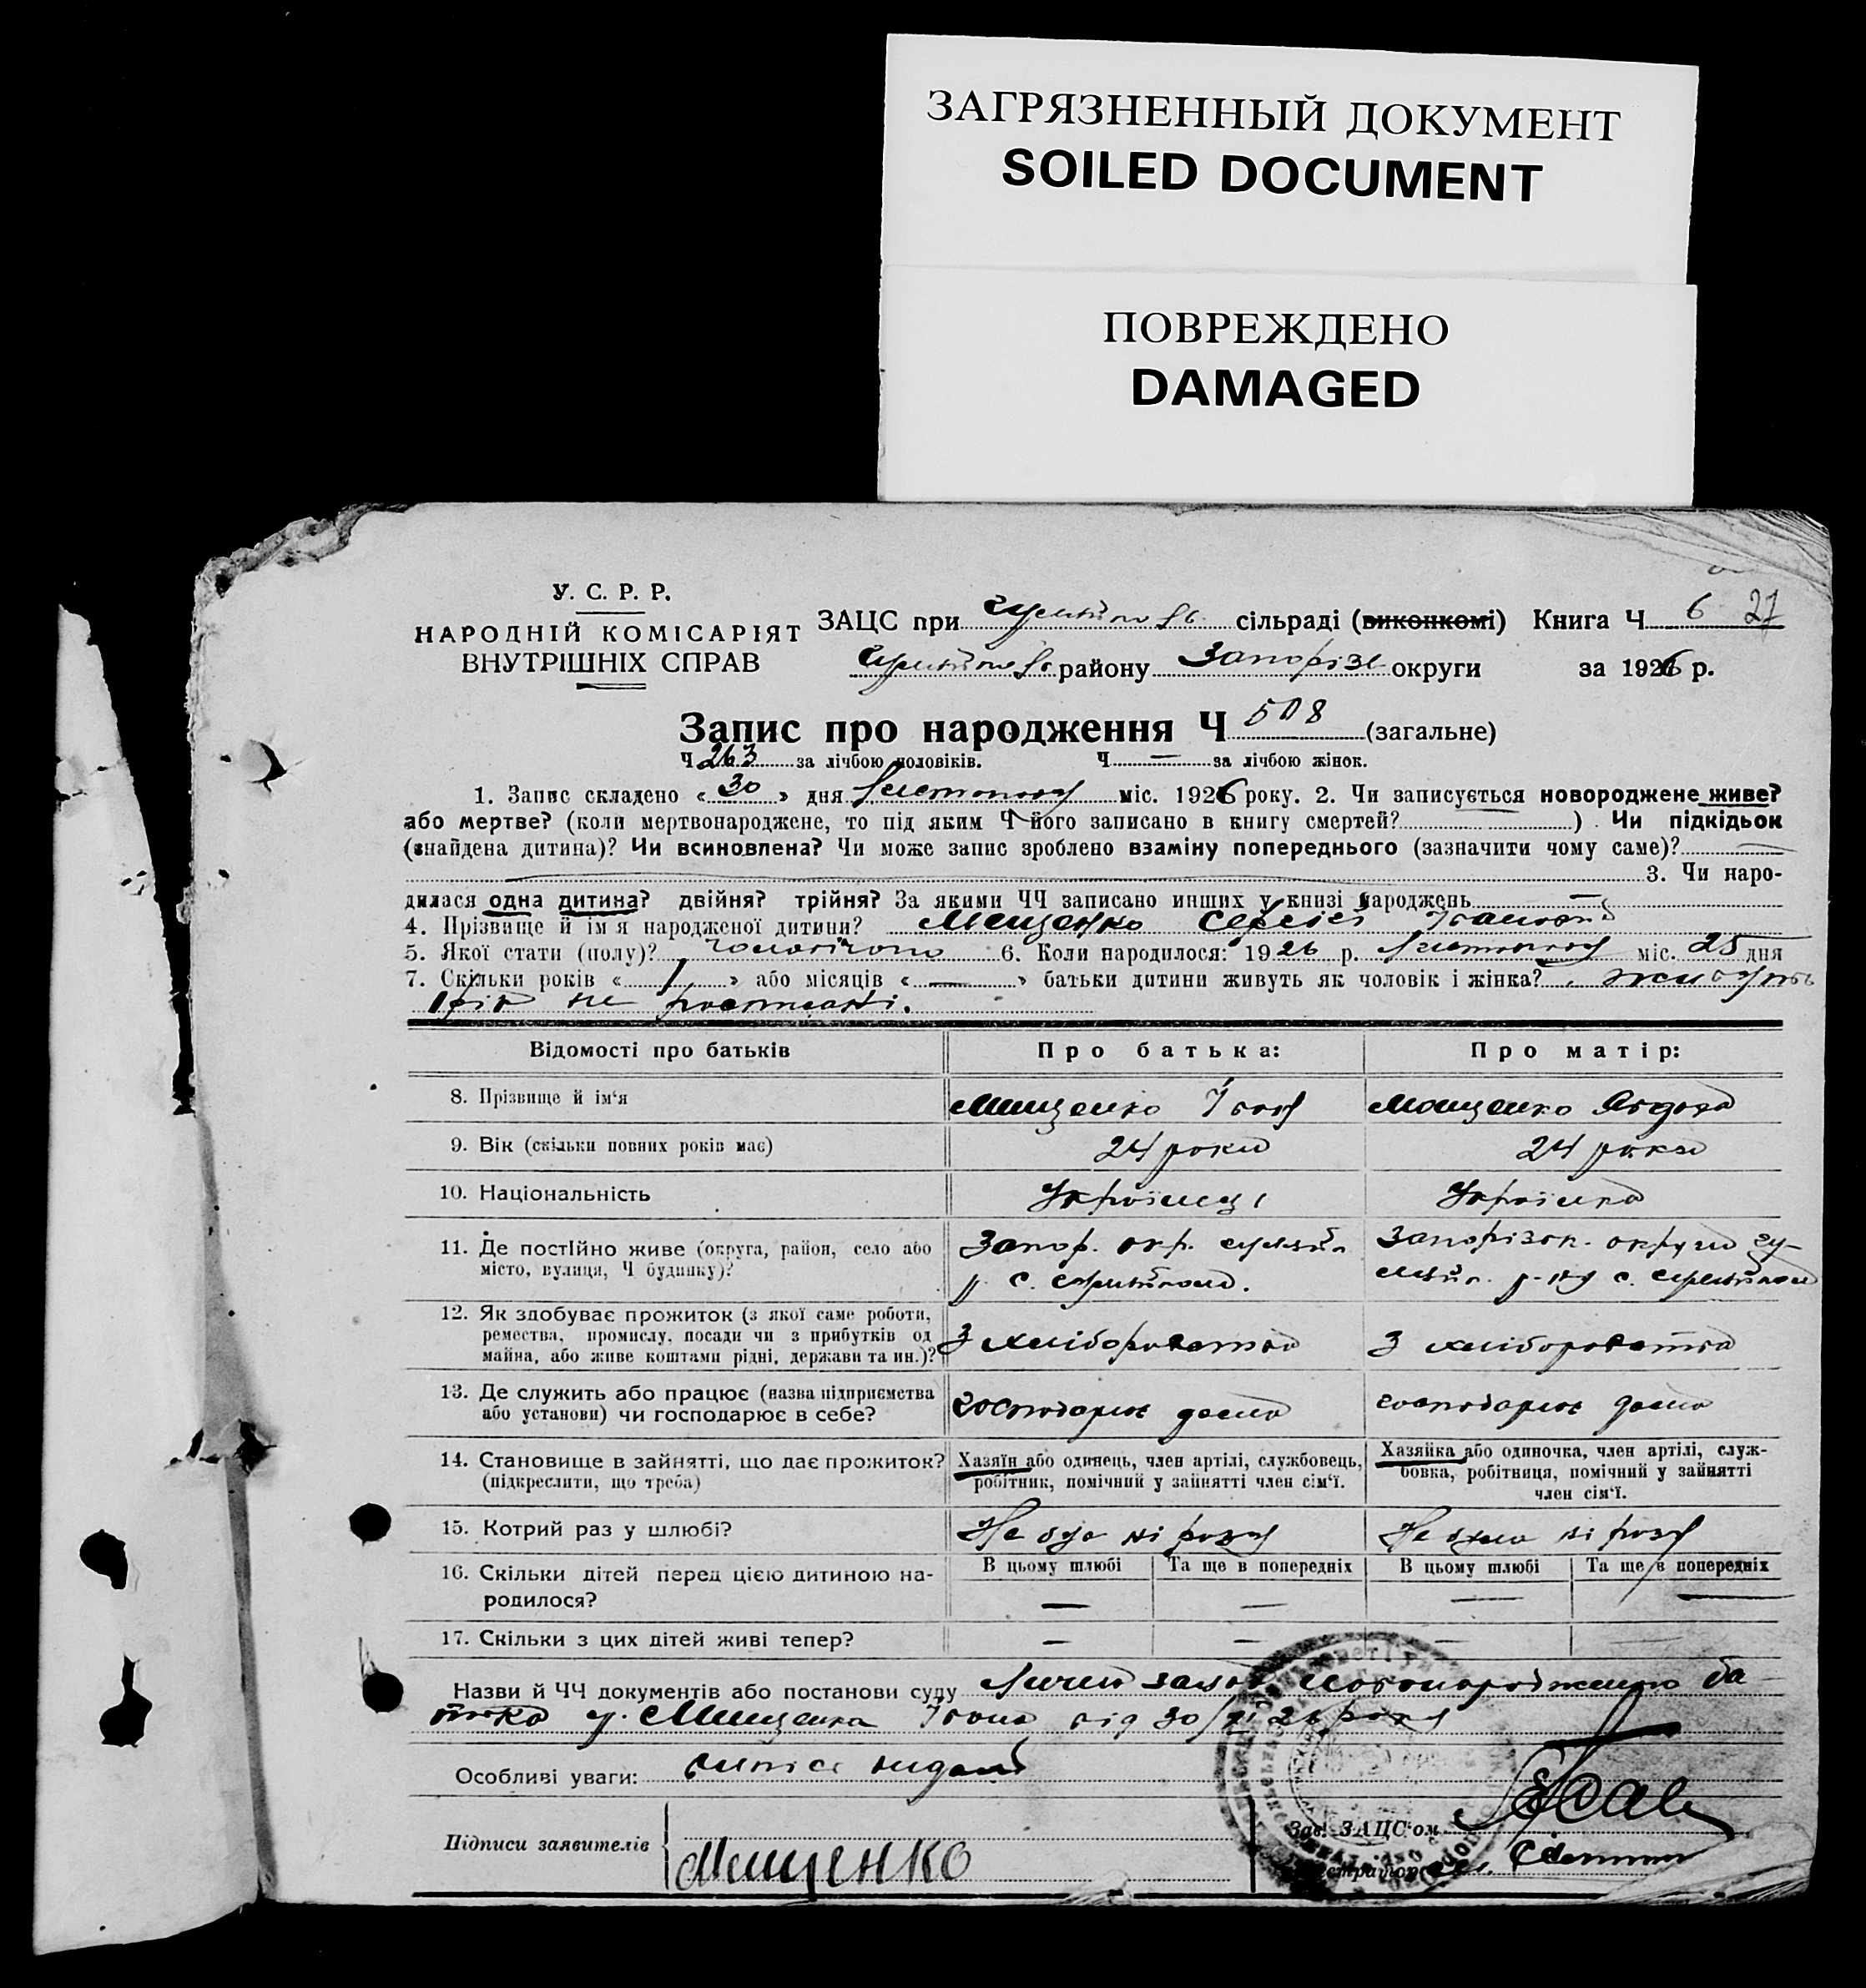 ЗАГРЯЗНЕННЫЙ ДОКУМЕНТ
SOILED DOCUMENT
ПОВРЕЖДЕНО
DAMAGED
У. С. Р. Р.
НАРОДНІЙ КОМІСАРІЯТ
ВНУТРІШНІХ СПРАВ
ЗАЦС при сільраді (виконкомі) Книга Ч 6 27
району Запоріз округи за 1926 р.
Запис про народження Ч 508 (загальне)
Ч 263 за лічбою чоловіків. Ч — за лічбою жінок.
1. Запис складено « 30 » дня Листопада міс. 1926 року. 2. Чи записується новороджене живе?
або мертве? (коли мертвонароджене, то під яким Ч його записано в книгу смертей? ) Чи підкідьок
(знайдена дитина)? Чи всиновлена? Чи може запис зроблено взаміну попереднього (зазначити чому саме)?
3. Чи наро-
дилася одна дитина? двійня? трійня? За якими ЧЧ записано инших у книзі народжень —
4. Прізвище й ім'я народженої дитини? Мищенко Сергій Іванович
5. Якої стати (полу)? чоловічого 6. Коли народилося: 1926 р. Листопада міс. 25 дня
7. Скільки років « 1 » або місяців « — » батьки дитини живуть як чоловік і жінка? живуть
1 рік не росписані.
Відомості про батьків Про батька: Про матір:
8. Прізвище й ім'я Мищенко Іван Мощенко Явдоха
9. Вік (скільки повних років має) 24 роки 24 роки
10. Національність Українець Українка
11. Де постійно живе (округа, район, село або Запор. окр. Запорізьк. округи
місто, вулиця, Ч будинку)? р. с. р-ну с.
12. Як здобуває прожиток (з якої саме роботи,
ремества, промислу, посади чи з прибутків од
майна, або живе коштами рідні, держави та ин.)? З хліборобства З хліборобства
13. Де служить або працює (назва підприємства
або установи) чи господарює в себе? господарює дома господарює дома
14. Становище в зайнятті, що дає прожиток? Хазяїн або одинець, член артілі, службовець, Хазяйка або одиночка, член артілі, служ-
(підкреслити, що треба) робітник, помічний у зайнятті член сім'ї. бовка, робітниця, помічний у зайнятті
член сім'ї.
15. Котрий раз у шлюбі? Не був ні разу Не була ні разу
16. Скільки дітей перед цією дитиною на- В цьому шлюбі Та ще в попередніх В цьому шлюбі Та ще в попередніх
родилося? — — — —
17. Скільки з цих дітей живі тепер? — — — —
Назви й ЧЧ документів або постанови суду новонародженого ба-
тька Мищенка Івана від 30/XI 26 року
Особливі уваги: видано
Підписи заявителів Мищенко
Зав. ЗАЦС'ом